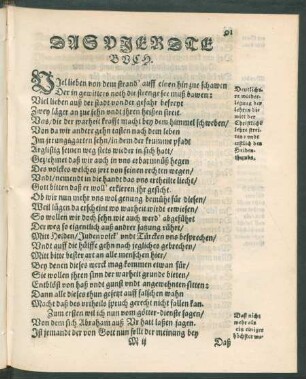 91
DAS VIERDTE
BVCH.
VIel lieben von dem strand' auff einen hin zue schawen
Der in gewittern noch die strenge see muß bawen:
Viel lieben auß der stadt von der gefahr befreyt
Zwey läger an zue sehn vndt jhren heißen streit.
Vns, die der warheit krafft macht bey dem himmel schweben/
Von da wir andre gehn tasten nach dem leben
Im jrrungsgarten sehn/ in dem der frembde pfadt
Ängstig seinen weg stets wieder in sich hatt/
Geziehmet daß wir auch in vns erbarmnüß hegen
Des volckes welches jert von seinen rechten wegen/
Vndt/ neundt in die handt das vns ertheilte liecht/
Gott bitten daß er woll' erklären jhr gesicht.
Ob wir nun mehr vns wol genung bemüht für diesen/
Weil sagen da erscheint wo warheit wirdt erwiesen/
So wollen wir doch sehn wie auch werd' abgeführt
Der weg so eigentlich auß andrer satzung rührt/
Mitt Heiden/ Juden volck' vndt Türcken vns besprechen/
Vndt auff die hülffe gehn nach jegliches gebrechen/
Mit bitte bester art an alle menschen hier/
Bey denen dieses werck mag kommen etwan für/
Sie wollen jhren sinn der warheit grunde bieten/
Entblößt von haß vndt gunst vndt angewehnten sitten:
Dann alle dieses thun gesetzt auff falschen wahn
Macht daß des vrtheils spruch gerecht nicht fallen kan.
Zum ersten wil ich nun vom götter-dienste sagen/
Von dem sich Abraham auß Vr hatt laßen jagen.
Ist jemandt der von Gott nun fellt der meinung bey
M ij
Daß
Daß nicht
mehr als
ein ewiger
höchster